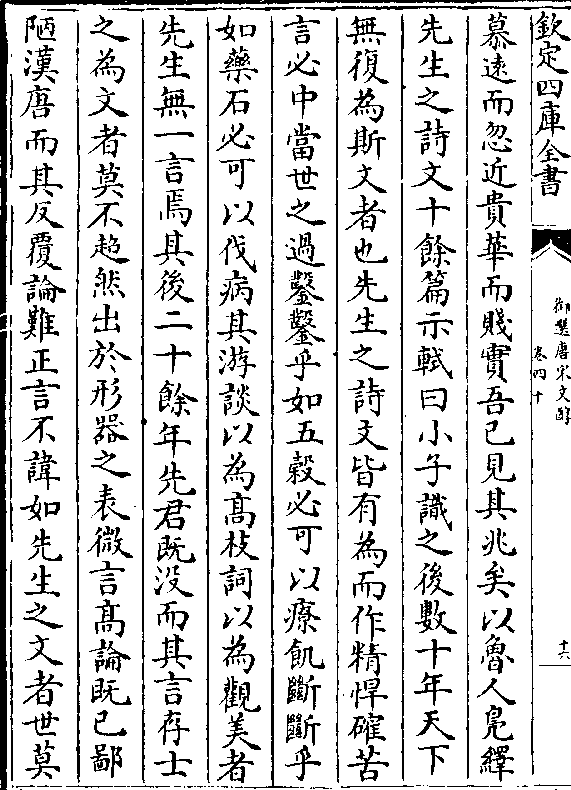 欽定四庫全書
御選唐宋文醇
卷四十
十六
慕逺而忽近貴華而賤實吾已見其兆矣以魯人鳧繹
先生之詩文十餘篇示軾曰小子識之後數十年天下
無復為斯文者也先生之詩文皆有為而作精悍確苦
言必中當世之過鑿鑿乎如五穀必可以療飢斷斷乎
如藥石必可以伐病其游談以為髙枝詞以為觀美者
先生無一言焉其後二十餘年先君既沒而其言存士
之為文者莫不超然出於形器之表微言髙論既已鄙
陋漢唐而其反覆論難正言不諱如先生之文者世莫